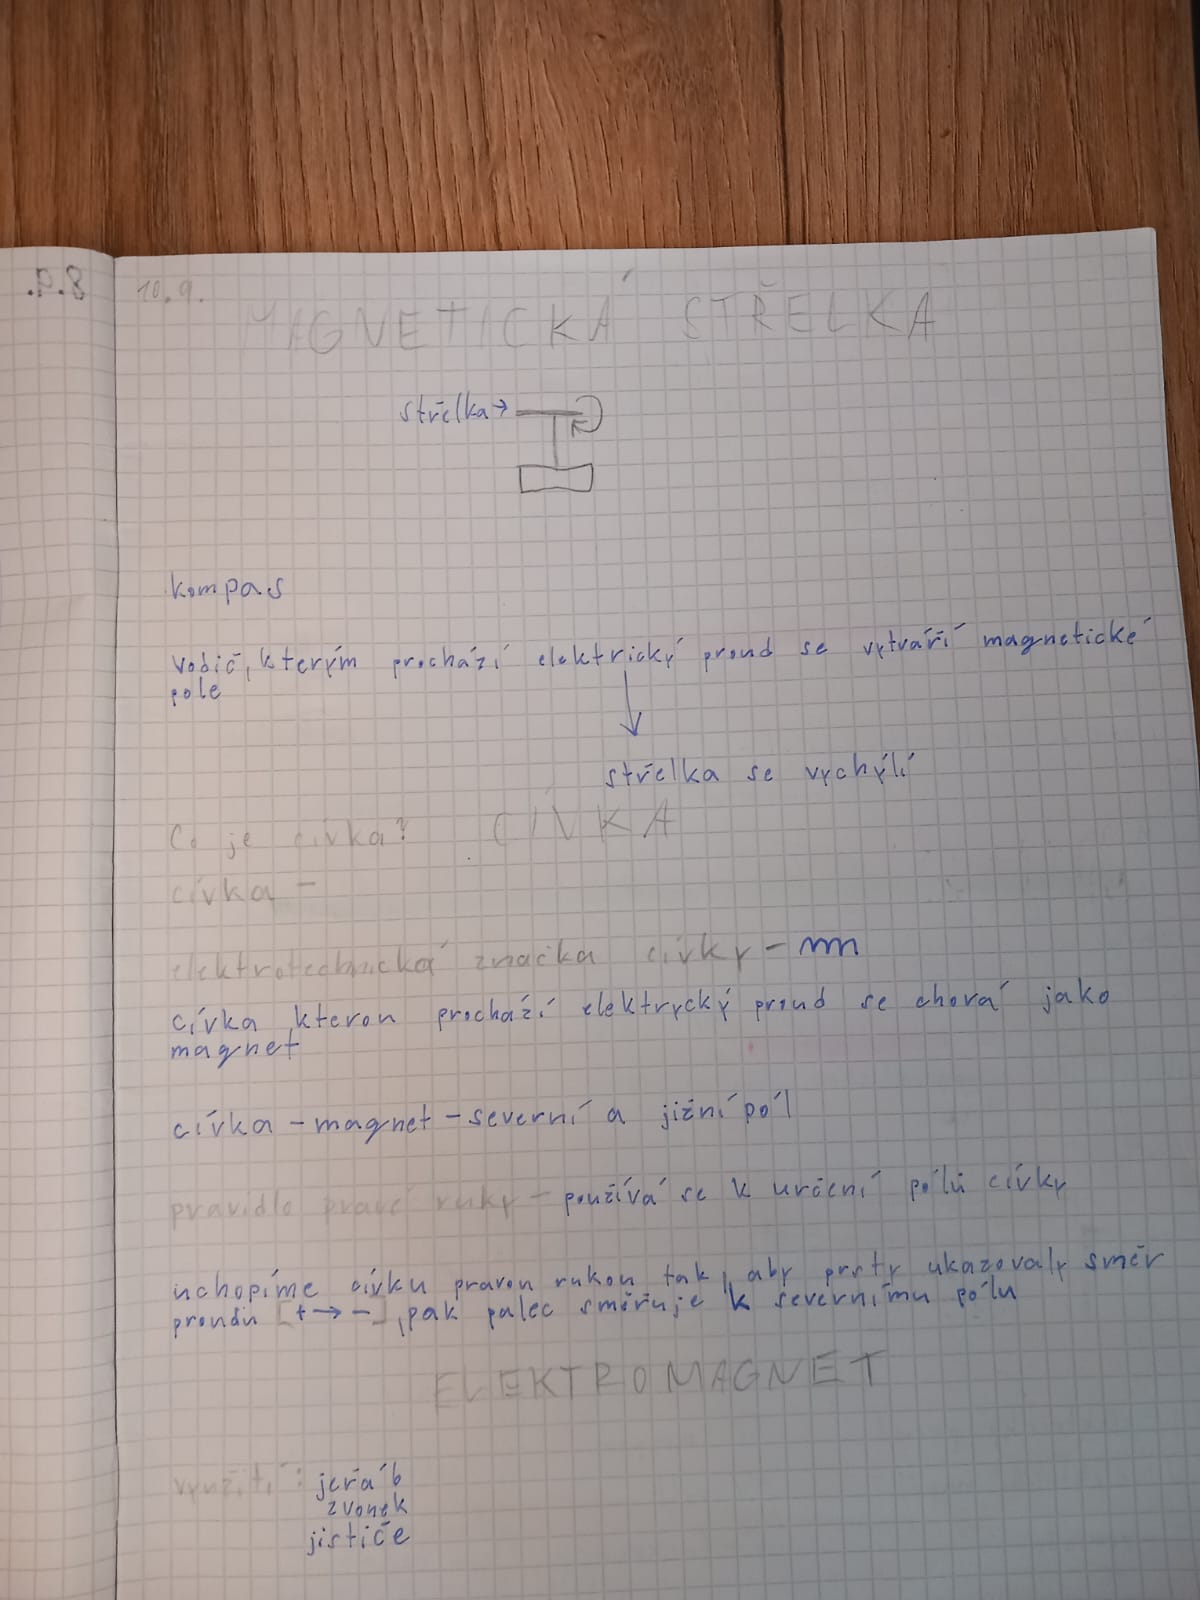 8.9.
10.9.
MAGNETICKÁ STŘELKA
střelka→
kompas
vodič, kterým prochází elektrický proud se vytváří magnetické
pole
střelka se vychýlí
Co je cívka? CÍVKA
cívka -
elektrotechnická značka cívky -
cívka, kterou prochází elektrycký proud se chová jako
magnet
cívka - magnet - severní a jižní pól
pravidlo pravé ruky - používá se k určení pólů cívky
uchopíme cívku pravou rukou tak, aby prsty ukazovaly směr
proudu [+→-], pak palec směřuje k severnímu pólu
ELEKTROMAGNET
využití: jeřáb
zvonek
jističe